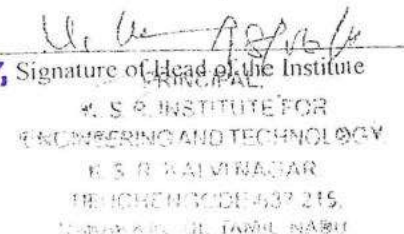 Signature of Head of the Institute
PRINCIPAL,
K. S. R. INSTITUTE FOR
ENGINEERING AND TECHNOLOGY
K. S. R. KALVI NAGAR
TIRUCHENGODE-637 215.
TAMIL NADU